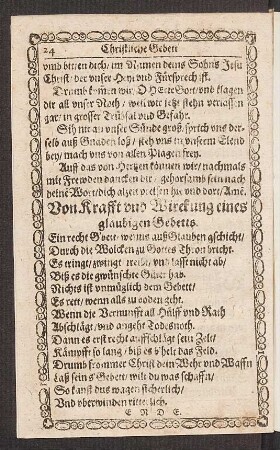 24 Christliche Gebett
vnd bitten dich / im Namen deins Sohns Jesu
Christ / der vnser Heyl vnd Fürsprech ist.
Drumb kommen wir O HErre Gott / vnd klagen
dir all vnser Noth / weil wir jetzt stehn verlassen
gar / in grosser Trübsal vnd Gefahr.
Sih nit an vnser Sünde groß / sprich vns der-
selb auß Gnaden loß / steh vns in vnserm Elend
bey / mach vns von allen Plagen frey.
Auff daß von Hertzen können wir / nachmals
mit Frewden dancken dir / gehorsamb sein nach
deine Wort / dich allzeit preisen hie vnd dort / Amē.
Von Krafft vnd Wirckung eines
glaubigen Gebetts.
Ein recht Gebett / wenns auß Glauben gschicht /
Durch die Wolcken zu Gottes Thron bricht.
Es ringt / zwingt / vnd laßt nicht ab /
Biß es die gwünschte Güter hab.
Nichts ist vnmüglich dem Gebett /
Es rett / wenn alls zu boden geht.
Wenn die Vernunfft all Hülff vnd Rath
Abschlägt / vnd angeht Todesnoth.
Dann es erst recht auffschlägt sein Zelt /
Kämpfft so lang / biß es b'helt das Feld.
Drumb frommer Christ dein Wehr vnd Waffn
Laß sein s' Gebett / wilt du was schaffn /
So kanst dus wagen sicherlich /
Vnd vberwinden ritterlich.
E N D E.